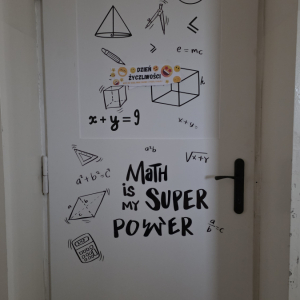 e=mc
DZIEŃ
ŻYCZLIWOŚCI
h
x+y=9
x+y=
a²b
√x+y
a²+b²=c
MATH
IS
MY SUPER
POWER
a/b=c